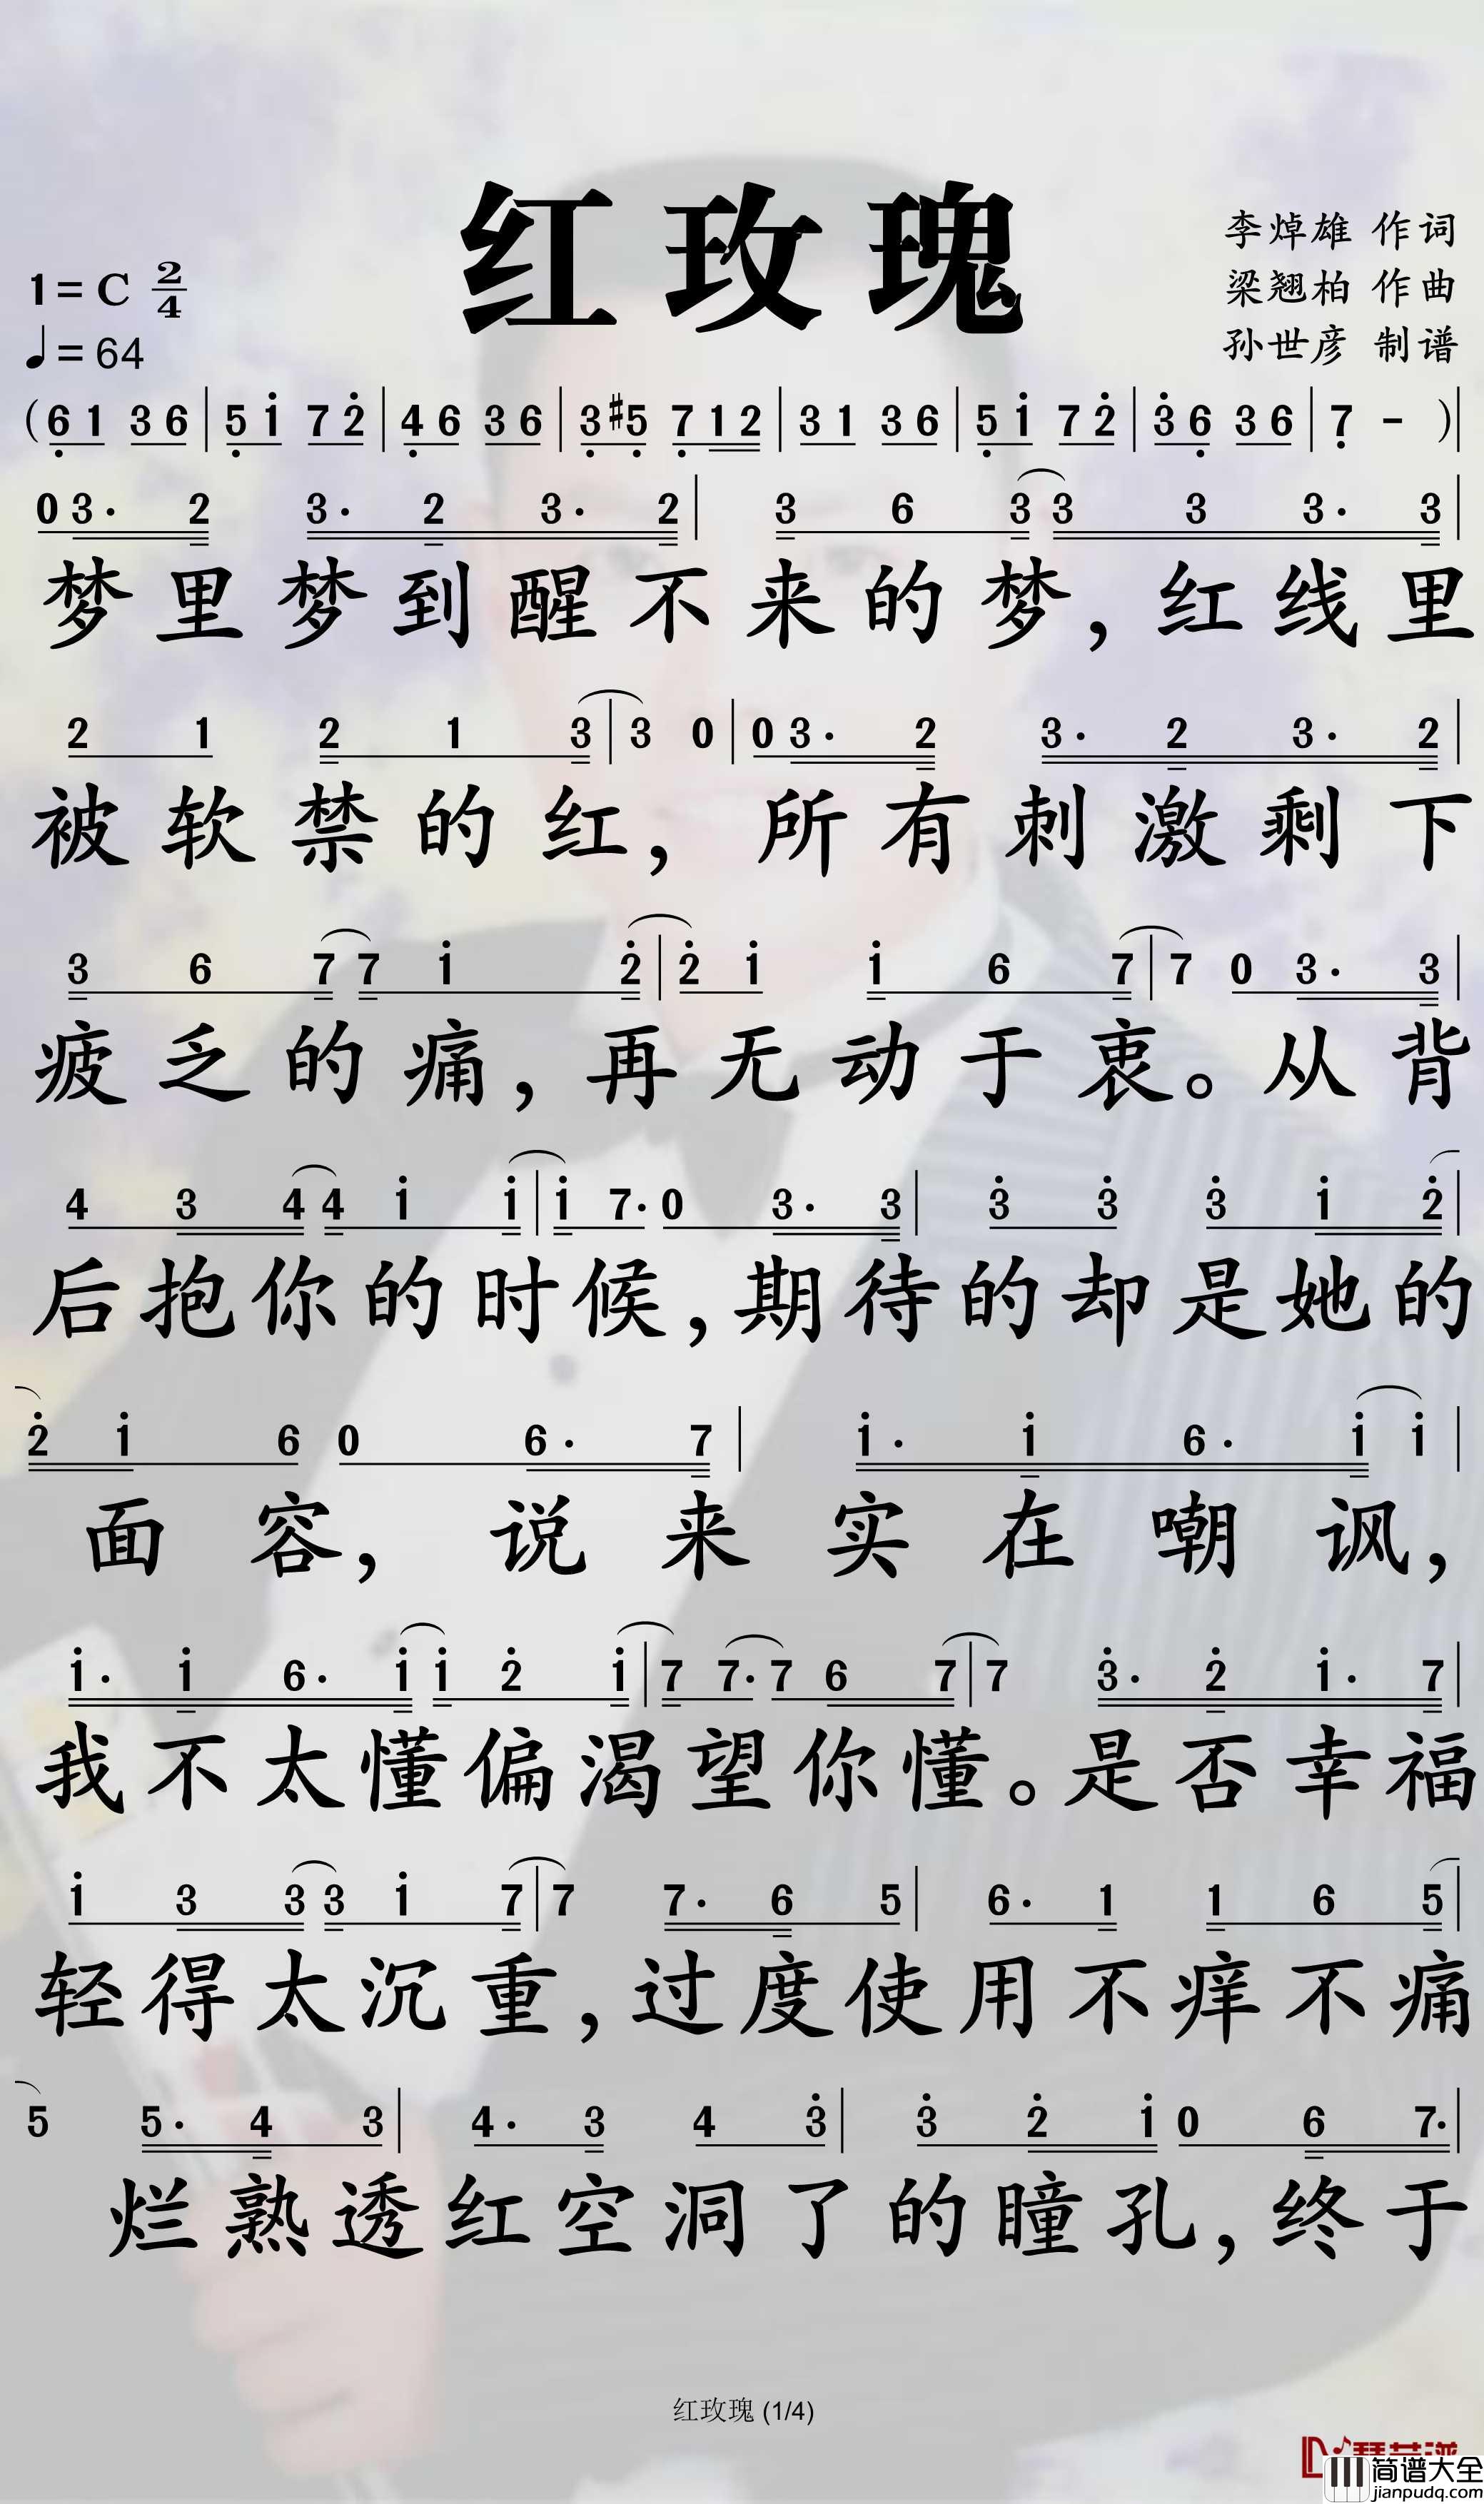 红玫瑰
李焯雄 作词
1=C 2/4
梁翘柏 作曲
♩=64
孙世彦 制谱
(6̣ 1 3 6 | 5̣ 1̇ 7 2̇ | 4̣ 6 3 6 | 3̣ #5̣ 7̣ 1 2 | 3 1 3 6 | 5̣ 1̇ 7 2̇ | 3̇ 6̣ 3 6 | 7̣ - )|
0 3· 2 3· 2 3· 2 | 3 6 3 3 3 3· 3 |
梦里梦到醒不来的梦，红线里
2 1 2 1 3 | 3 0 | 0 3· 2 3· 2 3· 2 |
被软禁的红，所有刺激剩下
3 6 7 7 1̇ 2̇ | 2̇ 1̇ 1̇ 6 7 | 7 0 3· 3 |
疲乏的痛，再无动于衷。从背
4 3 4 4 1̇ 1̇ | 1̇ 7· 0 3· 3 | 3̇ 3̇ 3̇ 1̇ 2̇ |
后抱你的时候，期待的却是她的
2̇ 1̇ 6 0 6· 7 | 1̇· 1̇ 6· 1̇ 1̇ |
面容，说来实在嘲讽，
1̇· 1̇ 6· 1̇ 1̇ 2̇ 1̇ | 7 7· 7 6 7 | 7 3̇· 2̇ 1̇· 7 |
我不太懂偏渴望你懂。是否幸福
1̇ 3 3 3 1̇ 7 | 7 7· 6 5 | 6· 1 1 6 5 |
轻得太沉重，过度使用不痒不痛
5 5· 4 3 | 4· 3 4 3̇ | 3̇ 2̇ 1̇ 0 6 7· |
烂熟透红空洞了的瞳孔，终于
红玫瑰 (1/4)
简谱大全
jianpudq.com